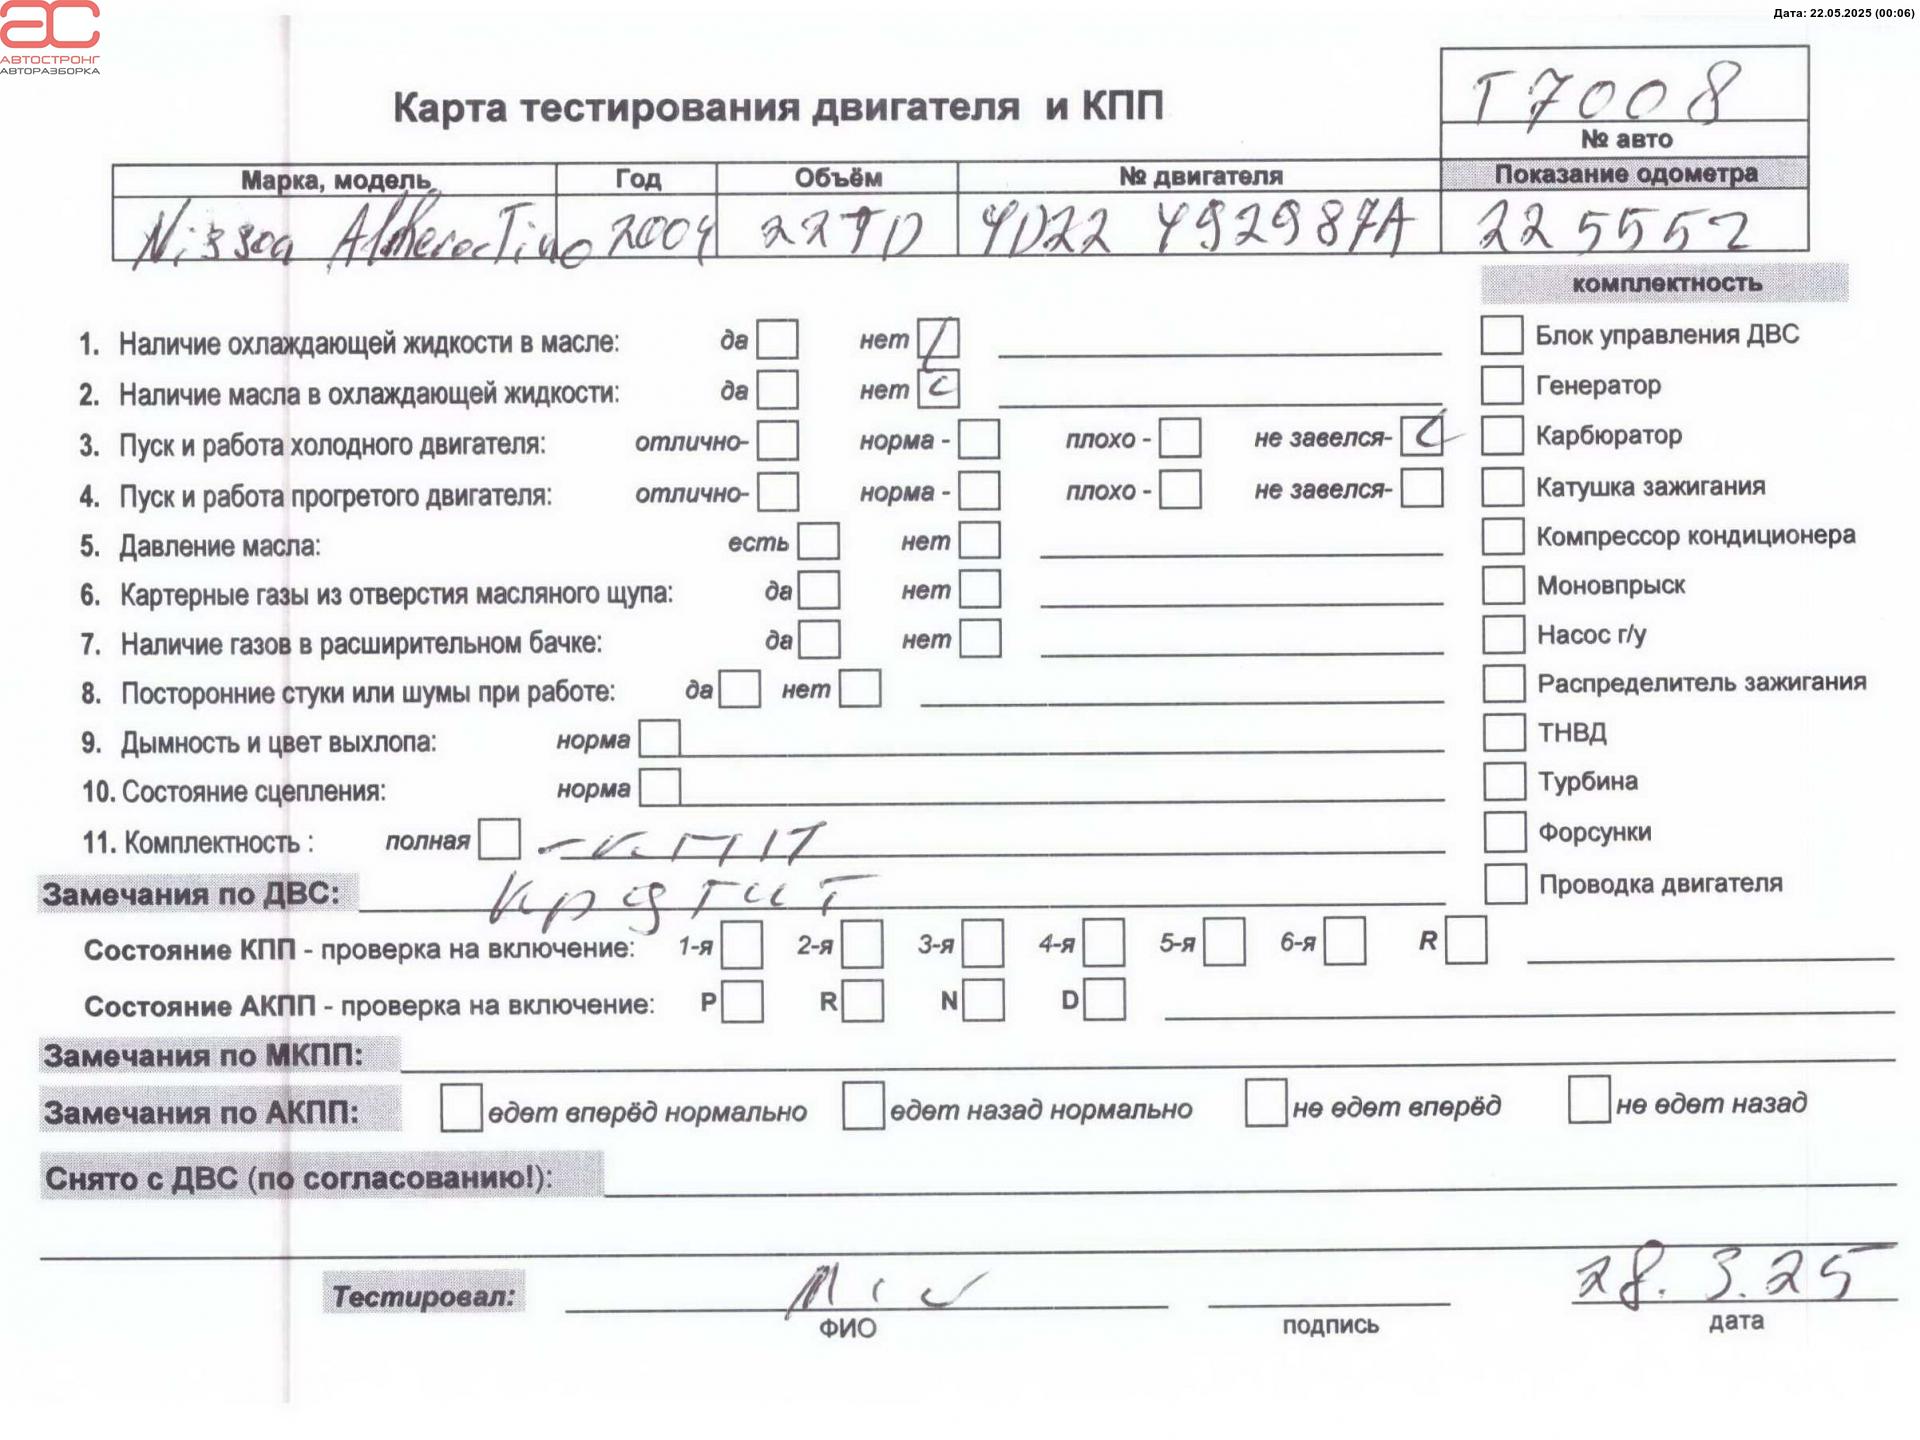 АВТОСТРОНГ
АВТОРАЗБОРКА
Дата: 22.05.2025 (00:06)
Карта тестирования двигателя и КПП
T7008
№ авто
Марка, модель Год Объём № двигателя Показание одометра
2004 22TD YD22 492987A 225552
комплектность
1. Наличие охлаждающей жидкости в масле: да нет
Блок управления ДВС
2. Наличие масла в охлаждающей жидкости: да нет
Генератор
3. Пуск и работа холодного двигателя: отлично- норма - плохо - не завелся-
Карбюратор
4. Пуск и работа прогретого двигателя: отлично- норма - плохо - не завелся-
Катушка зажигания
5. Давление масла: есть нет
Компрессор кондиционера
6. Картерные газы из отверстия масляного щупа: да нет
Моновпрыск
7. Наличие газов в расширительном бачке: да нет
Насос г/у
8. Посторонние стуки или шумы при работе: да нет
Распределитель зажигания
9. Дымность и цвет выхлопа: норма
ТНВД
10. Состояние сцепления: норма
Турбина
11. Комплектность : полная - КПП
Форсунки
Замечания по ДВС:
Проводка двигателя
Состояние КПП - проверка на включение: 1-я 2-я 3-я 4-я 5-я 6-я R
Состояние АКПП - проверка на включение: P R N D
Замечания по МКПП:
Замечания по АКПП: едет вперёд нормально едет назад нормально не едет вперёд не едет назад
Снято с ДВС (по согласованию!):
Тестировал: 28.3.25
ФИО подпись дата